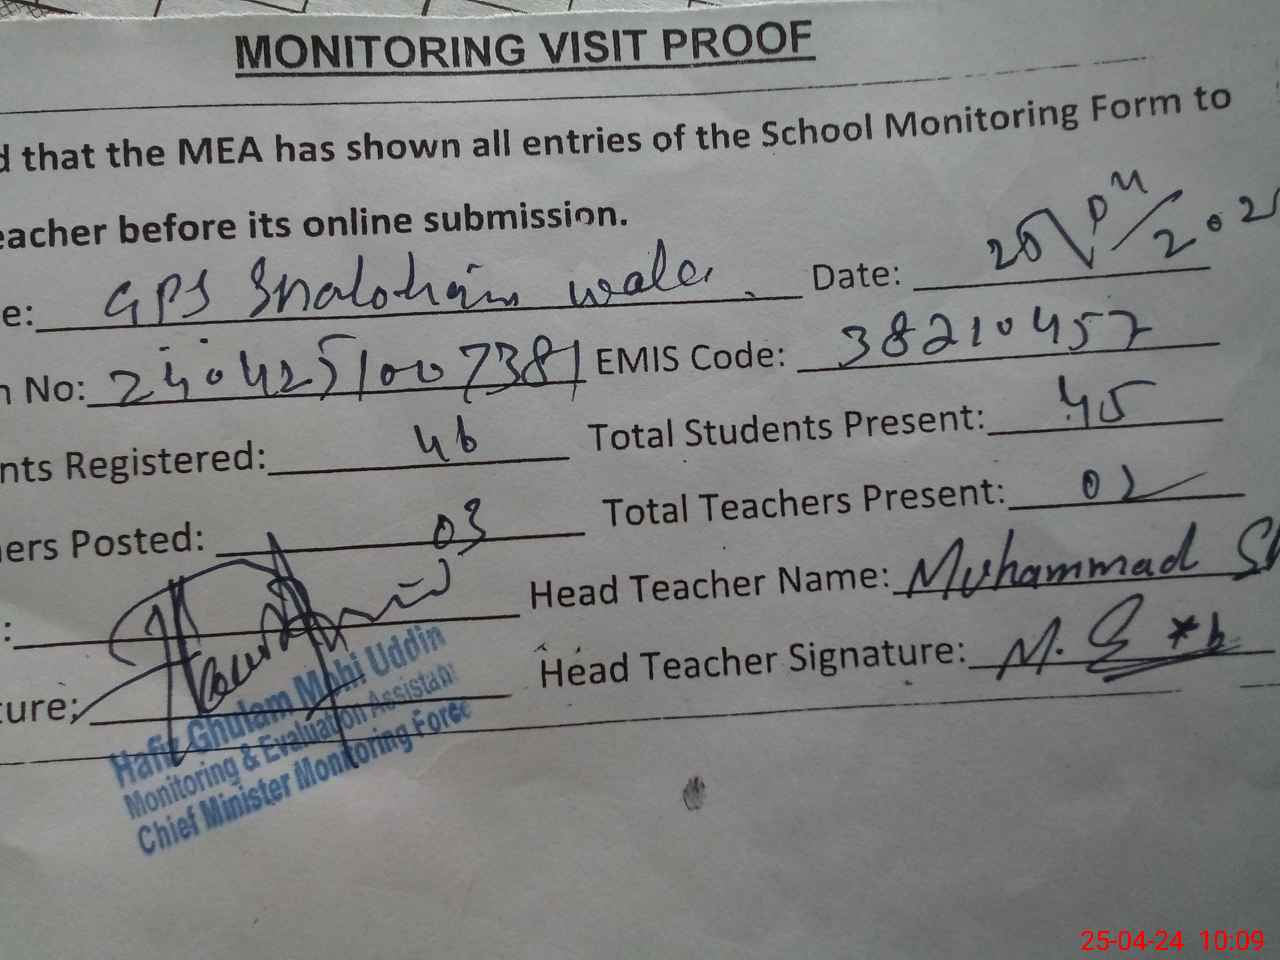 MONITORING VISIT PROOF
d that the MEA has shown all entries of the School Monitoring Form to
eacher before its online submission.
e: GPS wala Date:
n No: 2404251007381 EMIS Code: 38210457
nts Registered: 46 Total Students Present: 45
ers Posted: 03 Total Teachers Present: 02
: Head Teacher Name: Muhammad
ture: Head Teacher Signature: M.
Hafiz Ghulam Mohi Uddin
Monitoring & Evaluation Assistant
Chief Minister Monitoring Force
25-04-24 10:09